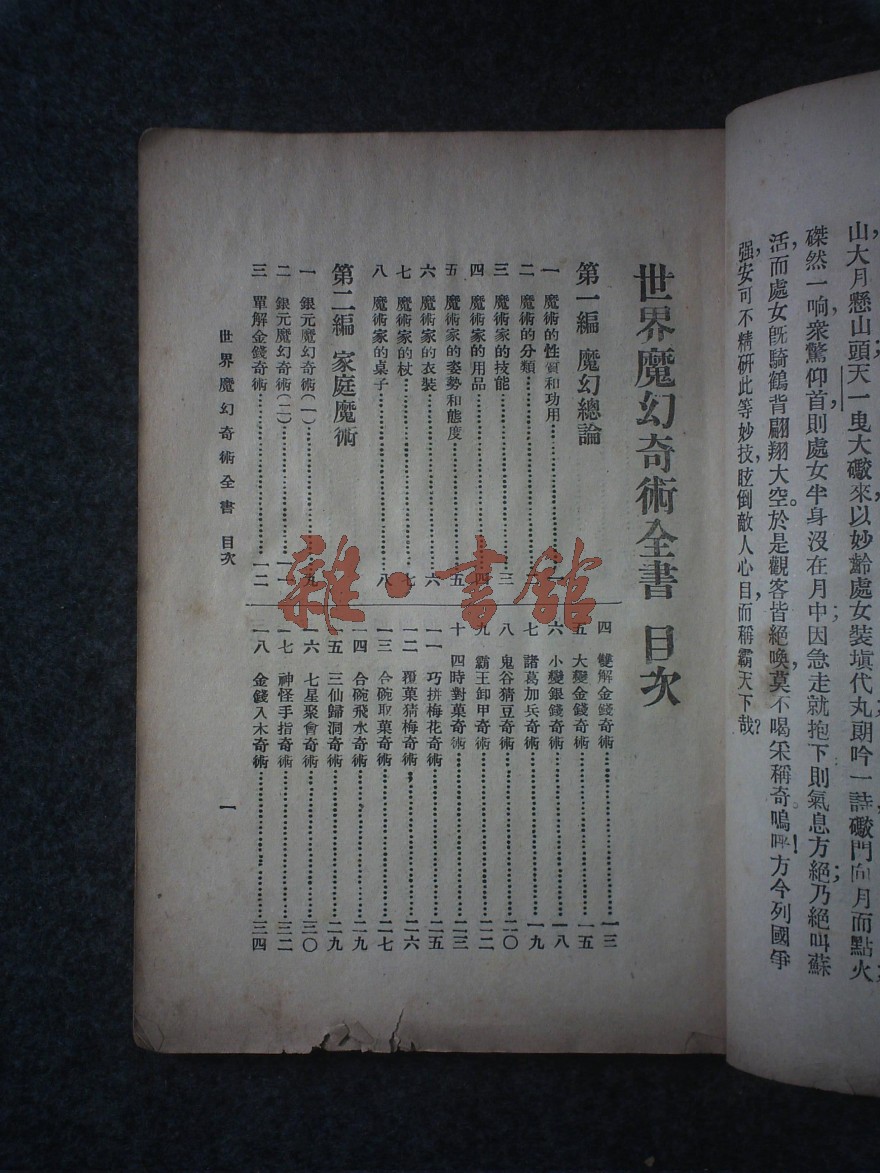 山大月懸山頭天一曳大礮來以妙齡處女裝塡代丸朗吟一詩礮門向月而點火
磔然一响衆驚仰首則處女半身沒在月中因急走就抱下則氣息方絕乃絕叫蘇
活而處女旣騎鶴背翩翔大空。於是觀客皆絕喚莫不喝采稱奇。嗚呼！方今列國爭
强安可不精研此等妙技眩倒敵人心目而稱霸天下哉？
世界魔幻奇術全書 目次
第一編 魔幻總論
一 魔術的性質和功用……一
二 魔術的分類……二
三 魔術家的技能……三
四 魔術家的用品……四
五 魔術家的姿勢和態度……五
六 魔術家的衣裝……六
七 魔術家的杖……七
八 魔術家的桌子……八
第二編 家庭魔術
一 銀元魔幻奇術（一）……九
二 銀元魔幻奇術（二）……一一
三 單解金錢奇術……一二
四 雙解金錢奇術……一三
五 大變金錢奇術……一五
六 小變銀錢奇術……一八
七 諸葛加兵奇術……一九
八 鬼谷猜豆奇術……二〇
九 霸王卸甲奇術……二二
十 四時對菓奇術……二三
一一 巧拼梅花奇術……二五
一二 覆菓猜梅奇術……二六
一三 合碗取菓奇術……二七
一四 合碗飛水奇術……二九
一五 三仙歸洞奇術……二九
一六 七星聚會奇術……三〇
一七 神怪手指奇術……三二
一八 金錢入木奇術……三四
世界魔幻奇術全書 目次
一
雜·書館